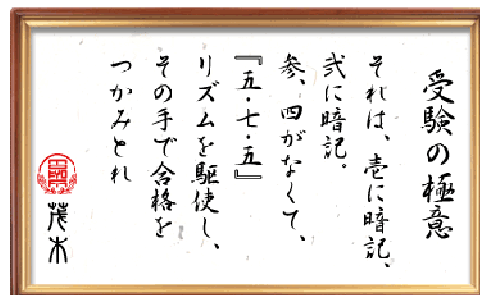 受験の極意
それは、壱に暗記、
弐に暗記。
参、四がなくて、
『五・七・五』
リズムを駆使し、
その手で合格を
つかみとれ
茂木